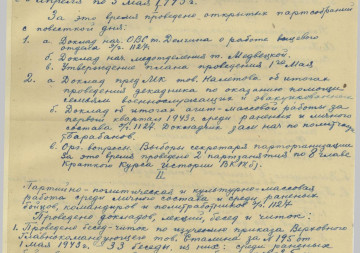 апреля по 5 мая 1943 г.
За это время проведено открытых партсобраний
с повесткой дня:
1. а Доклад нач. ОВС т. Демина о работе вещевого
отдела э/г 1127.
б. Доклад нач. медпункта т. Медвецкой.
в. Утверждение плана проведения 1го Мая
2. а Доклад пред. МК тов. об итогах
проведения декадника по оказанию помощи
семьям военнослужащих и эвакуированных
б. Доклад об итогах агит-массовой работы за
первый квартал 1943 г. среди раненых и личного
состава э/г 1127. Докладчик зам. нач. по политч. т.
Барабанов.
в. Орг. вопросы. Выборы секретаря парторганизации
За это время проведено 2 партзанятия по 8 главе
Краткого Курса истории ВКП(б).
II.
Партийно-политическая и культурно-массовая
работа среди личного состава и среди раненых
бойцов, командиров и политработников э/г 1127.
Проведено докладов, лекций, бесед и читок:
1. Проведено бесед-читок по изучению приказа Верховного
Главнокомандующего тов. Сталина за № 195 от
1 мая 1943 г. 33 беседы, из них: среди раненых